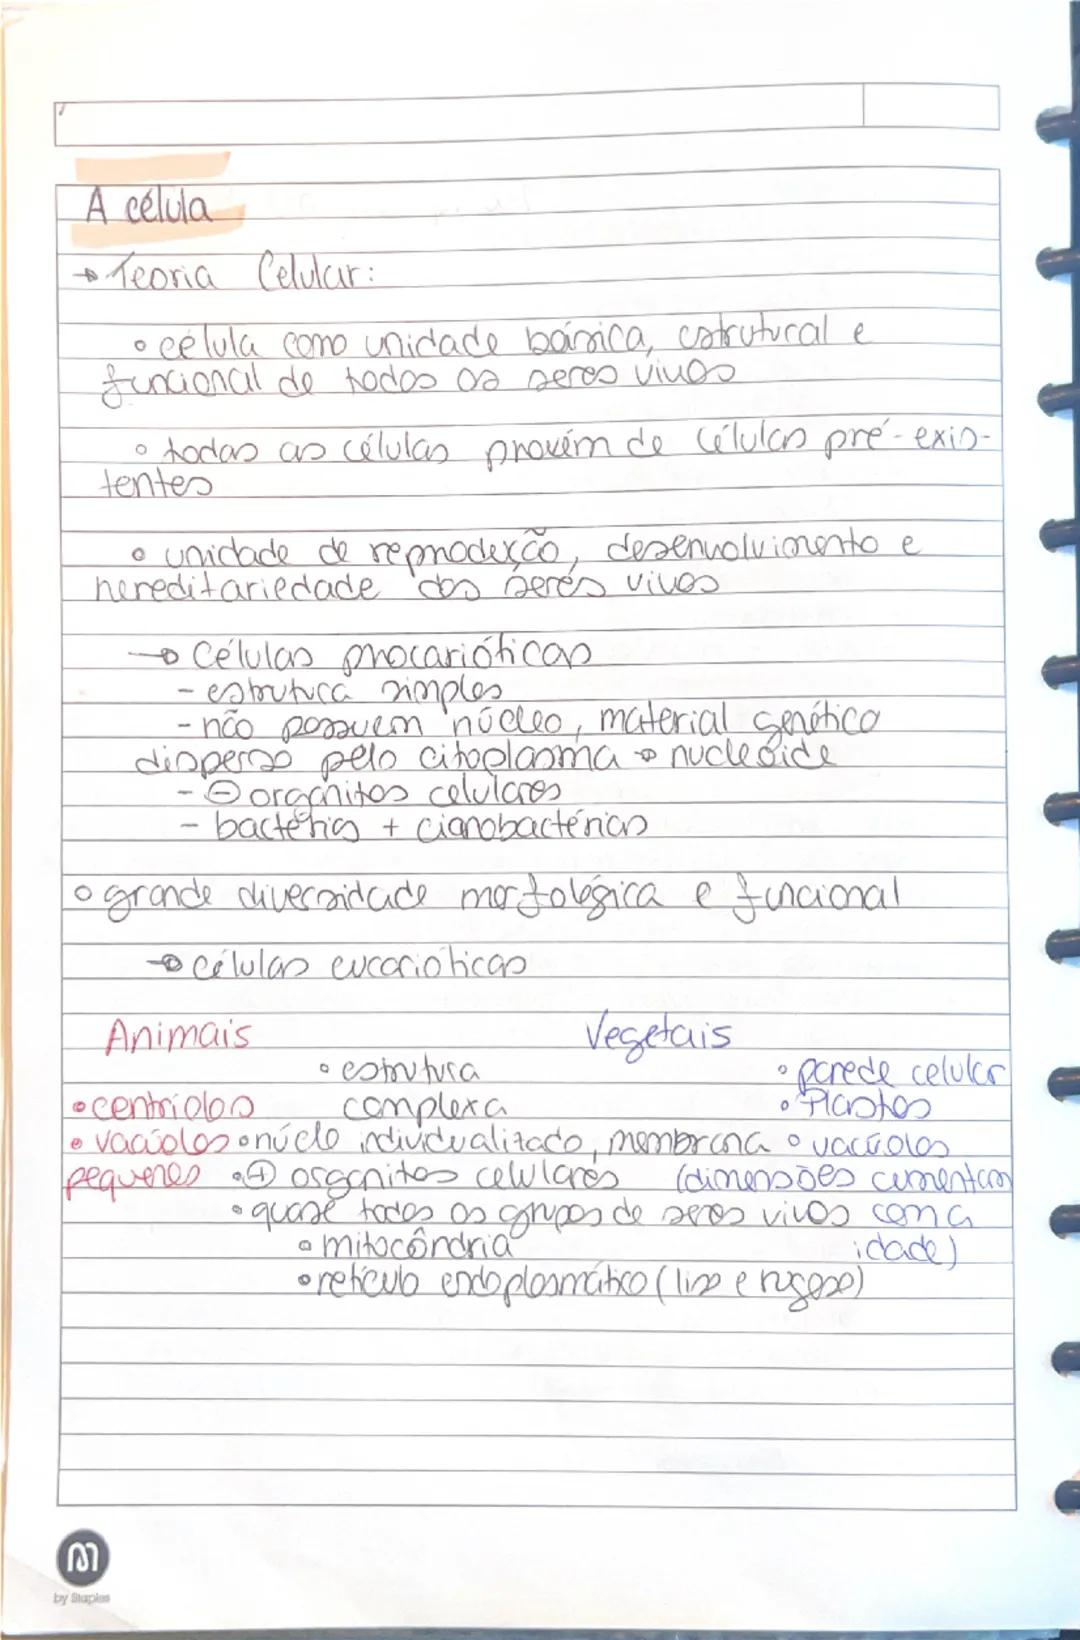 A célula
→ Teoria Celular:
• célula como unidade básica, estrutural e
funcional de todos os seres vivos
• todas as células provém de células pré-exis-
tentes
• unidade de reprodução, desenvolvimento e
hereditariedade dos seres vivos
→ Células procarióticas
- estrutura simples
- não possuem núcleo, material genético
disperso pelo citoplasma → nucleóide
- ⊖ organitos celulares
- bactérias + cianobactérias
• grande diversidade morfológica e funcional
→ células eucarióticas
Animais Vegetais
• estrutura • parede celular
• centríolos complexa • Plastos
• vacúolos • núcleo individualizado, membrana • vacúolos
pequenos • ⊕ organitos celulares (dimensões aumentam
• quase todos os grupos de seres vivos com a
• mitocôndria idade)
• retículo endoplasmático (liso e rugoso)
M
by Staples